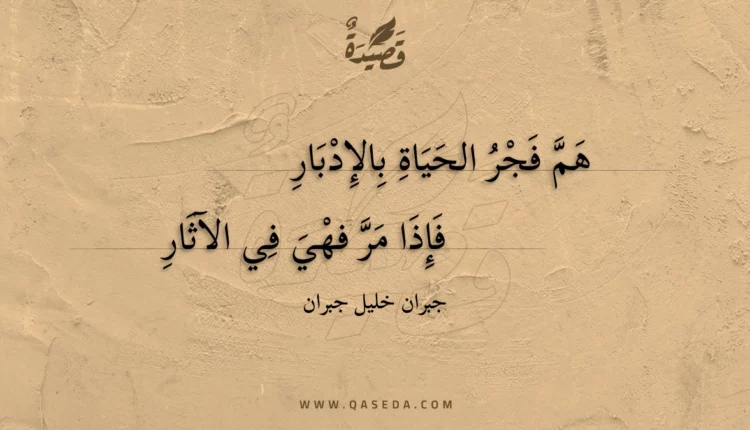 قَصِيدَةٌ
هَمَّ فَجْرُ الحَيَاةِ بِالإِدْبَارِ
فَإِذَا مَرَّ فهْيَ فِي الآثَارِ
جبران خليل جبران
WWW.QASEDA.COM